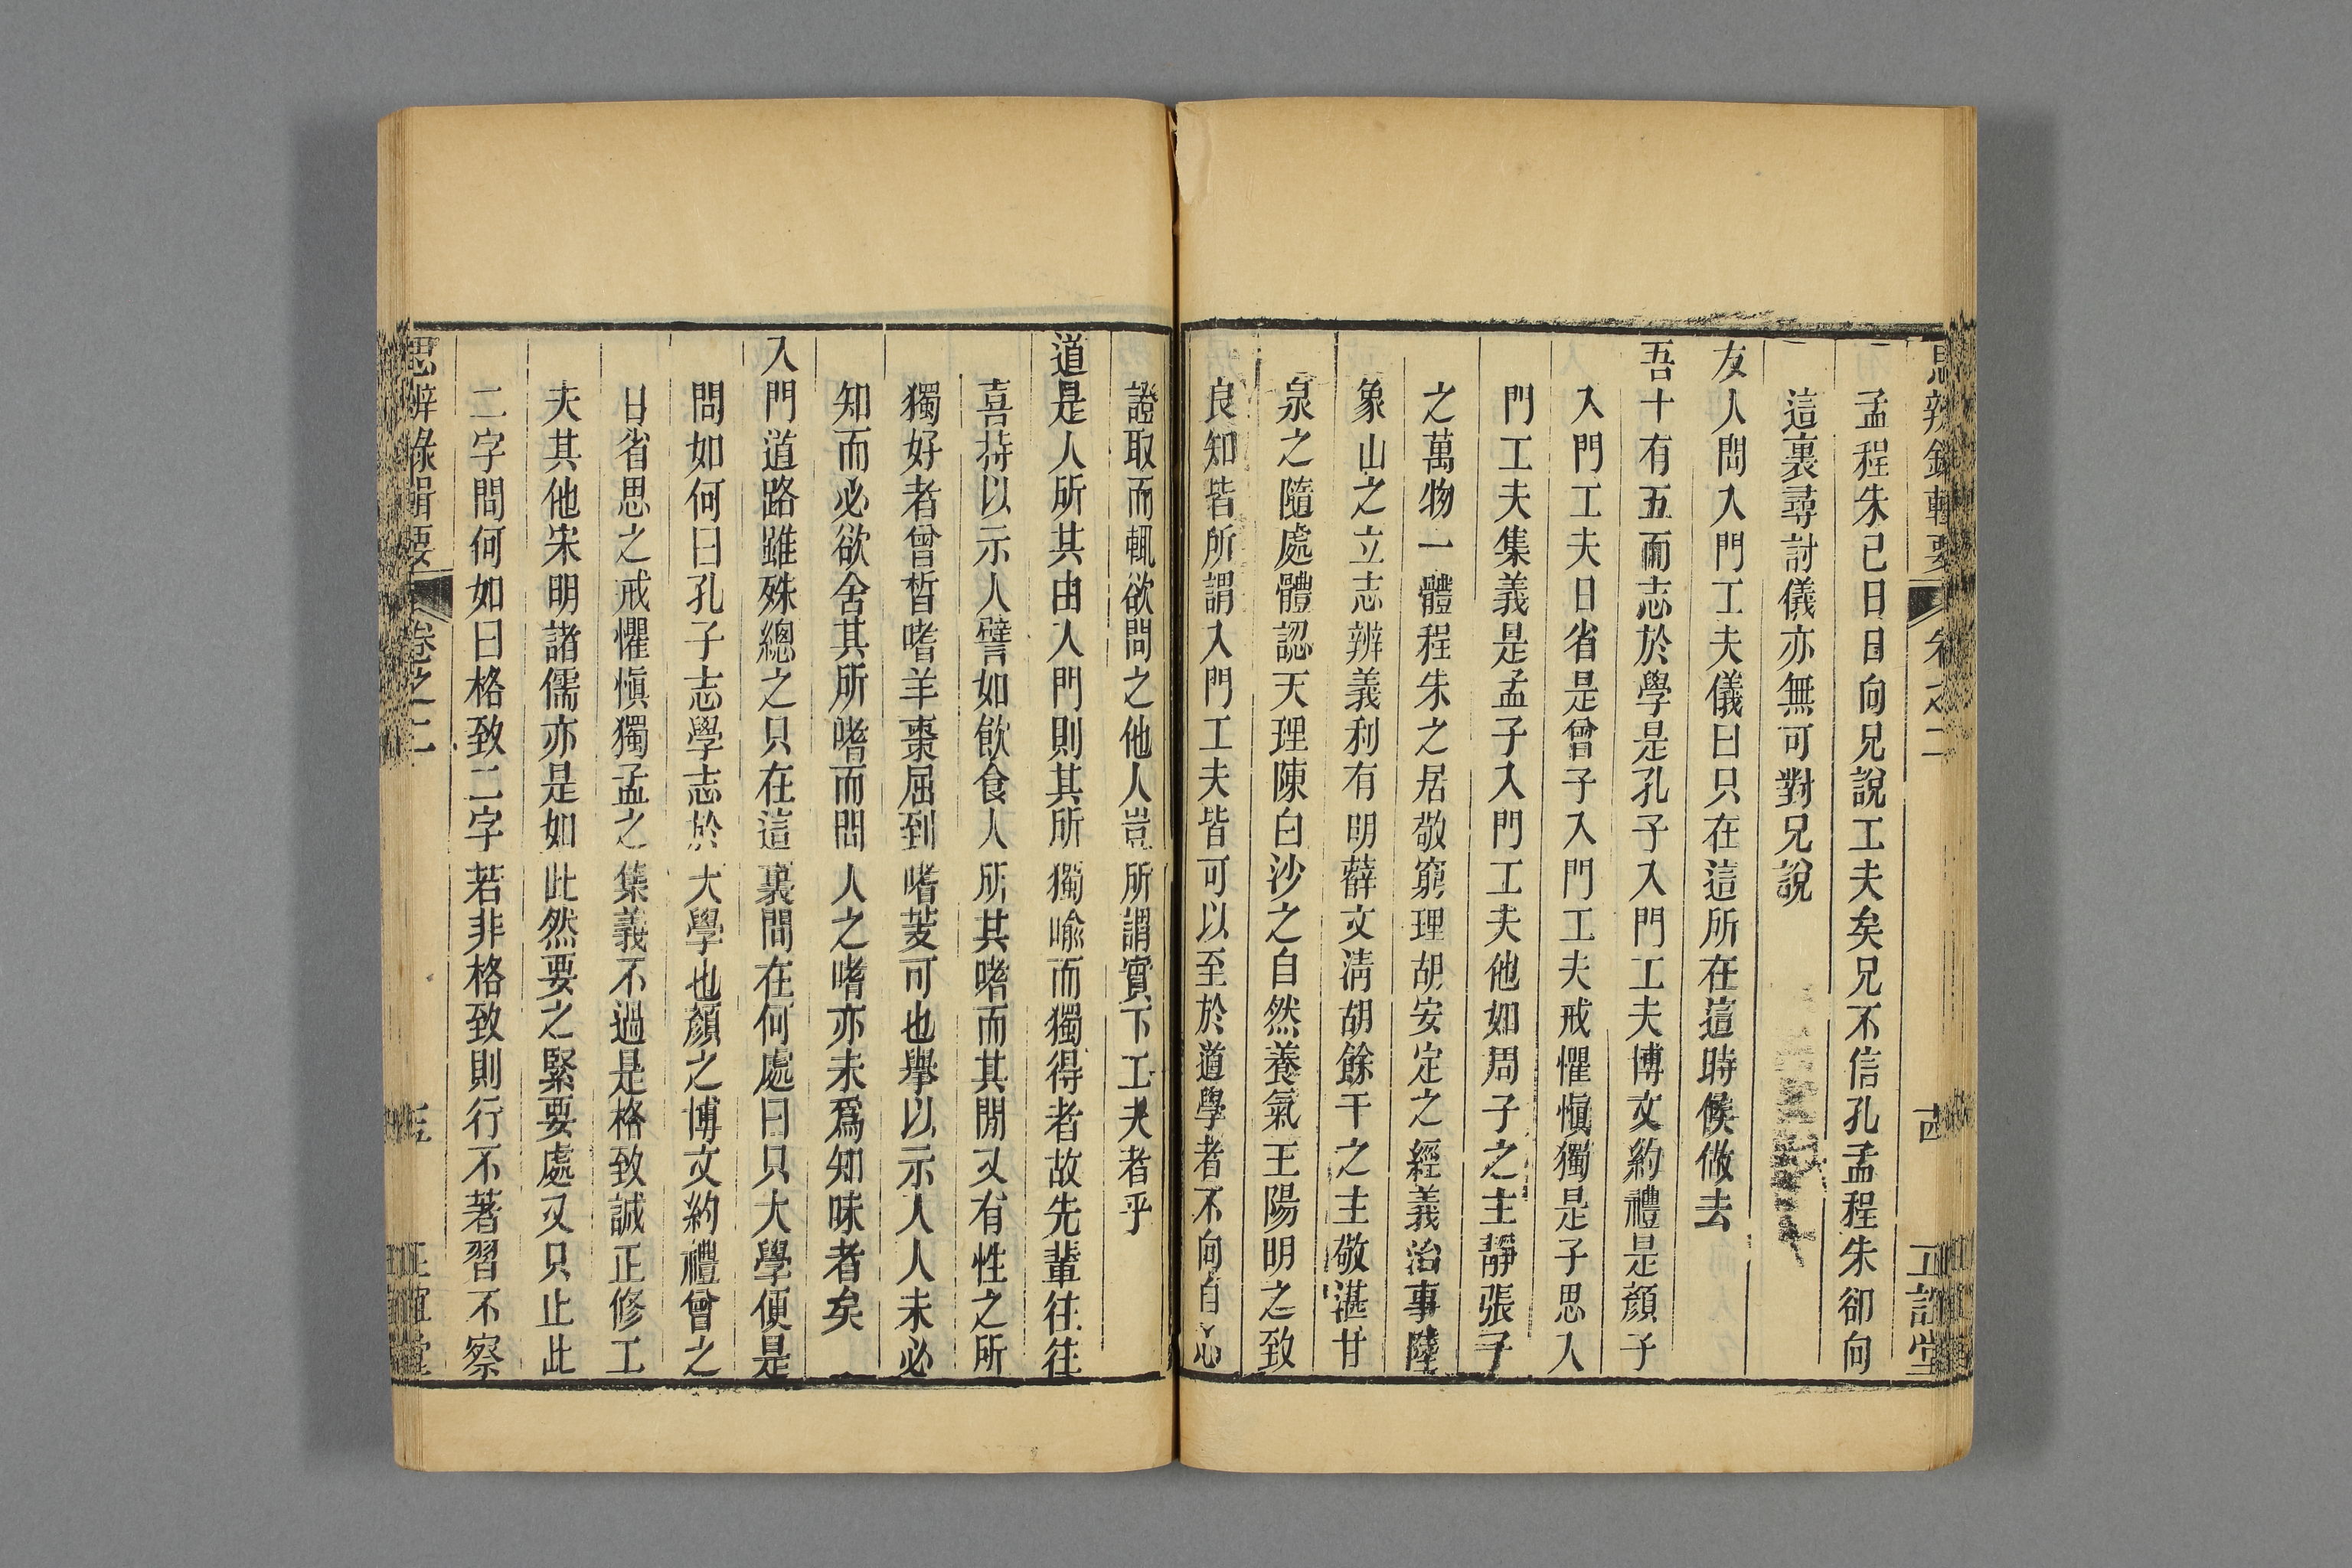 思辨錄輯要 卷之二 十四 正誼堂
孟程朱已日日向兄說工夫矣兄不信孔孟程朱卻向
這裏尋討儀亦無可對兄說
友人問入門工夫儀曰只在這所在這時候做去
吾十有五而志於學是孔子入門工夫博文約禮是顏子
入門工夫日省是曾子入門工夫戒懼慎獨是子思入
門工夫集義是孟子入門工夫他如周子之主靜張子
之萬物一體程朱之居敬窮理胡安定之經義治事陸
象山之立志辨義利有明薛文清胡餘干之主敬湛甘
泉之隨處體認天理陳白沙之自然養氣王陽明之致
良知皆所謂入門工夫皆可以至於道學者不向自心
證取而輒欲問之他人豈所謂實下工夫者乎
道是人所其由入門則其所獨喻而獨得者故先輩往往
喜持以示人譬如飲食人所其嗜而其閒又有性之所
獨好者曾晳嗜羊棗屈到嗜芰可也舉以示人人未必
知而必欲舍其所嗜而問人之嗜亦未爲知味者矣
入門道路雖殊總之只在這裏問在何處曰只大學便是
問如何曰孔子志學志於大學也顏之博文約禮曾之
日省思之戒懼慎獨孟之集義不過是格致誠正修工
夫其他宋明諸儒亦是如此然要之緊要處又只止此
二字問何如曰格致二字若非格致則行不著習不察
思辨錄輯要 卷之二 正誼堂